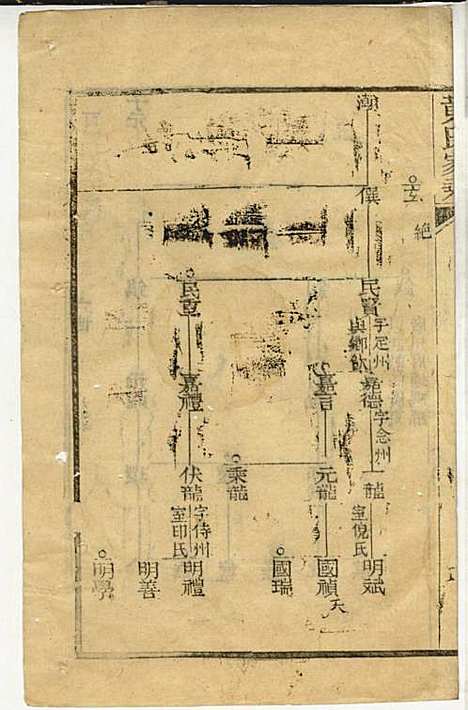 黃氏家乘
絕
潮
僎
民賢
字定州
與鄉飲
嘉德
字念州
一龍
室倪氏
明斌
嘉言
元龍
國禎
夭
國瑞
乘龍
民重
嘉禮
伏龍
字侍州
室印氏
明禮
明善
明學